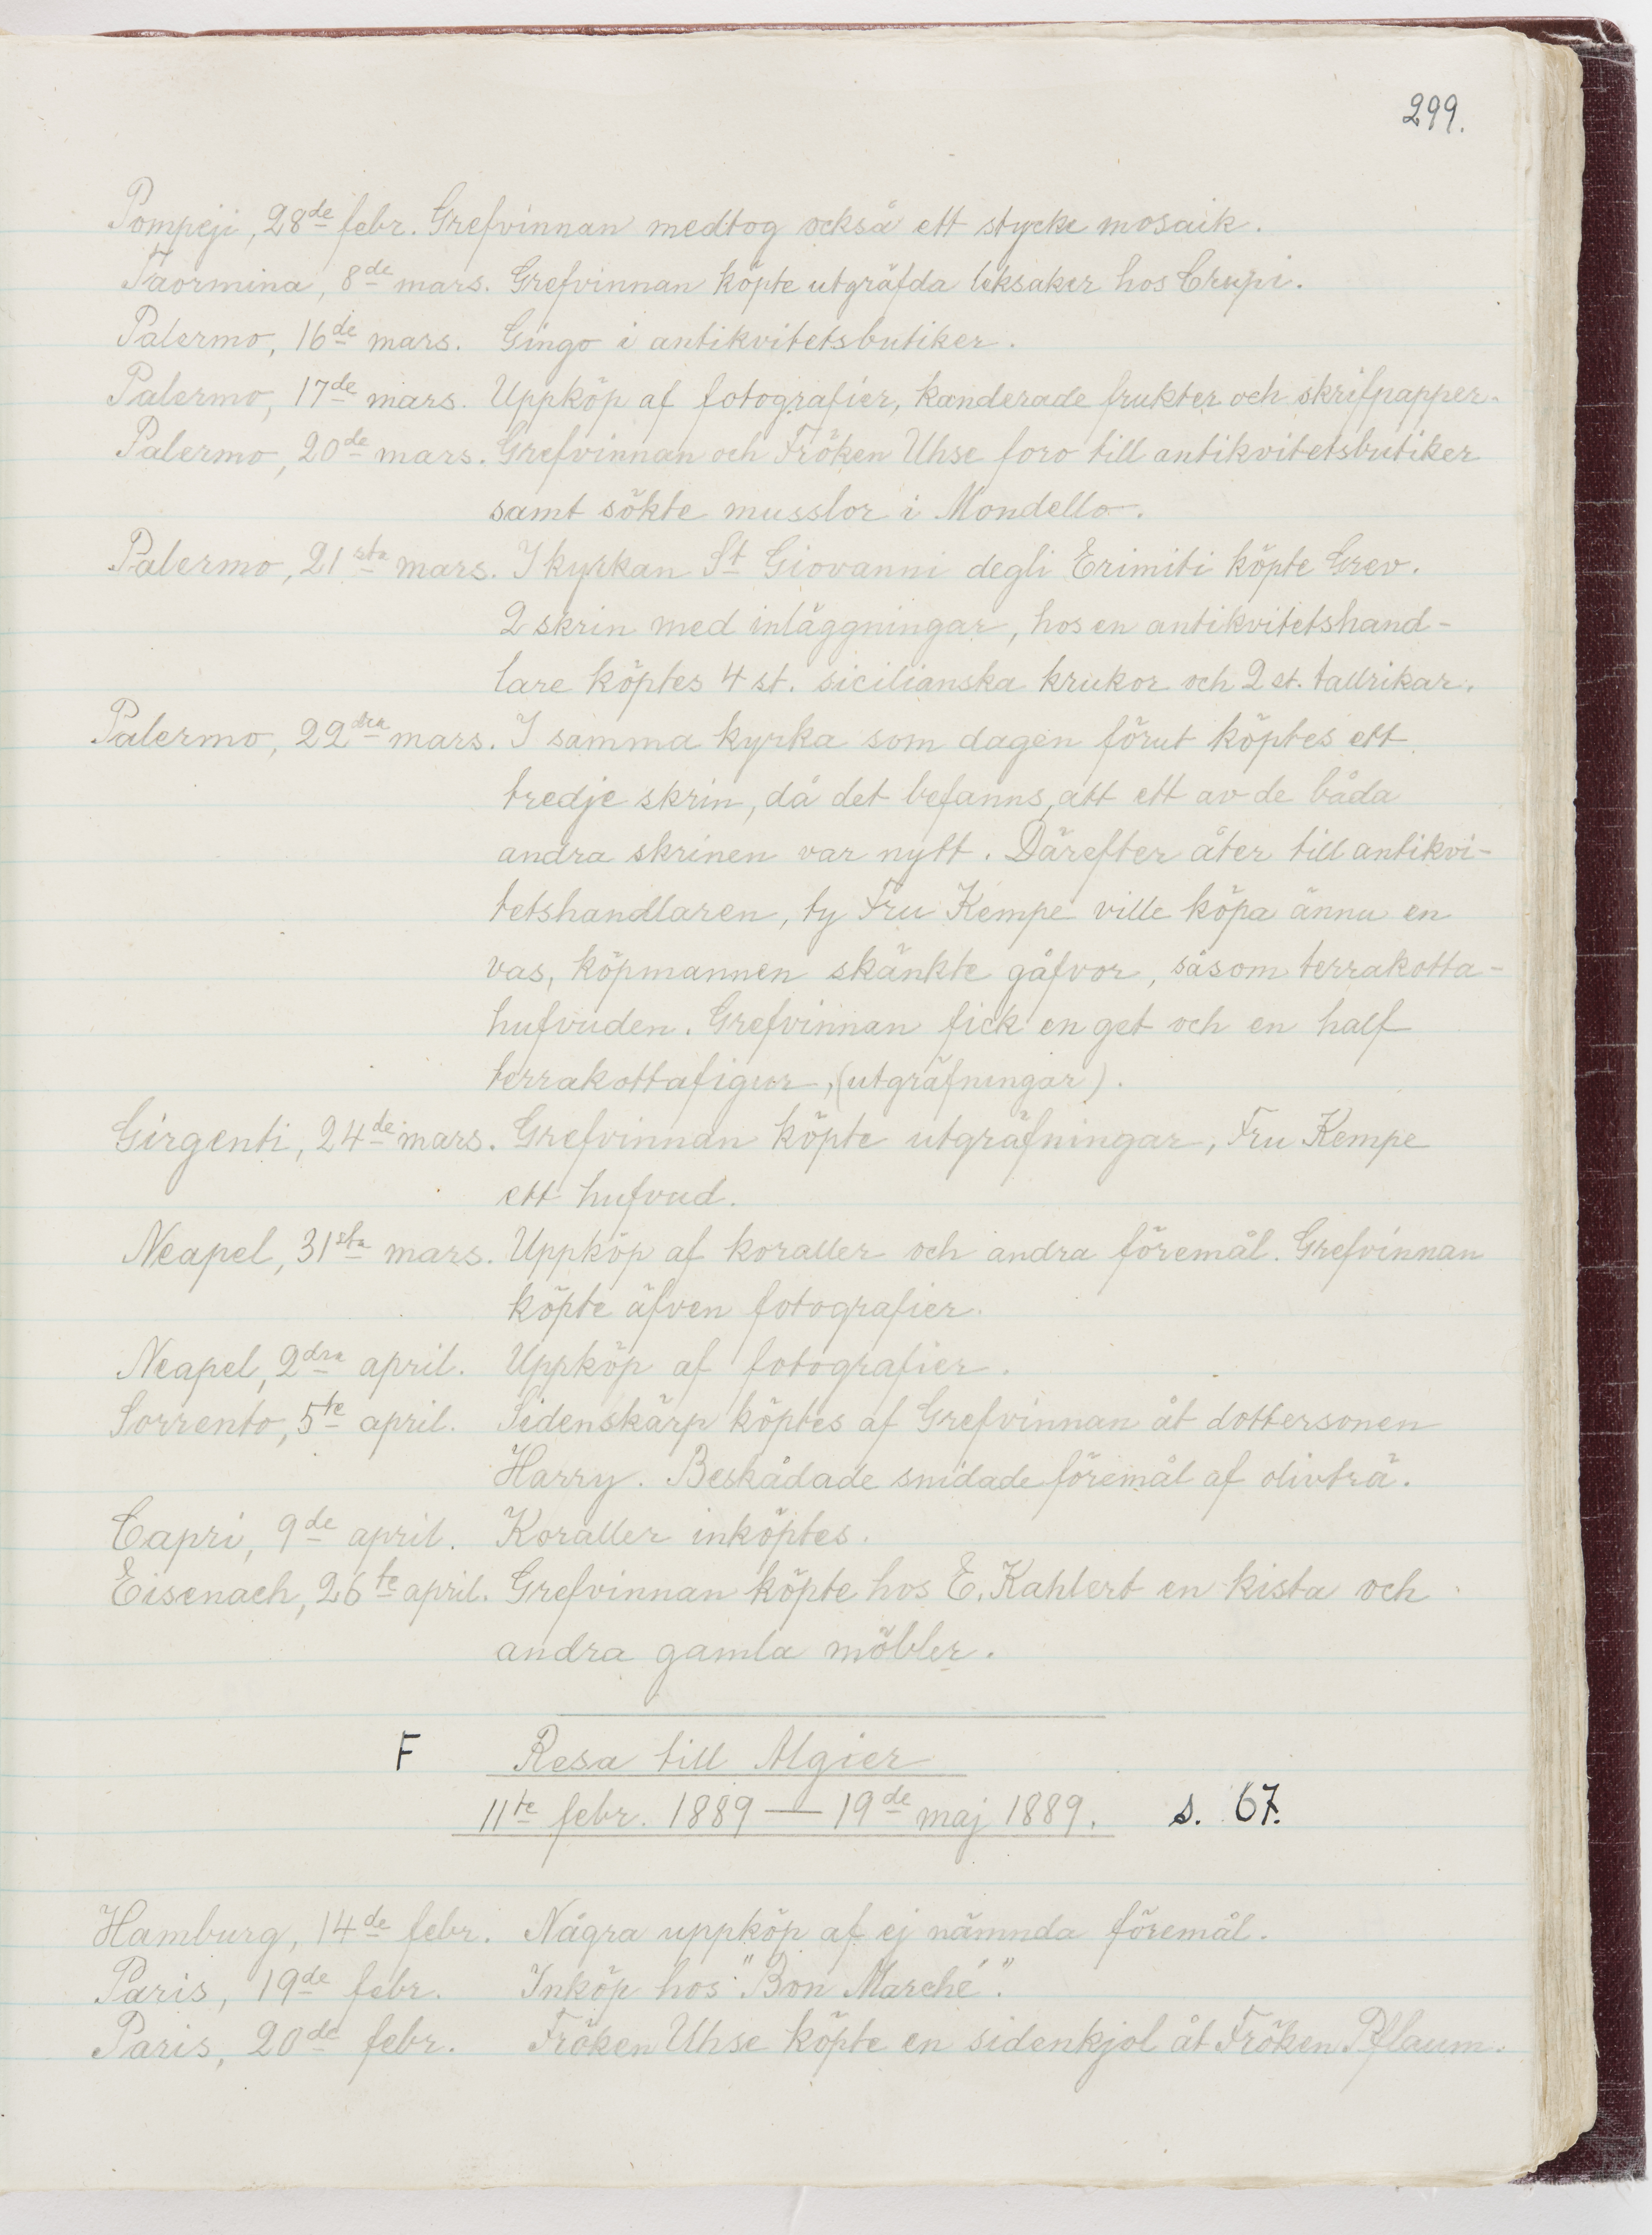 299.
Pompeji, 28de febr. Grefvinnan medtog också ett stycke mosaik.
Taormina, 8de mars. Grefvinnan köpte utgräfda leksaker hos Crupi.
Palermo, 16de mars. Gingo i antikvitetsbutiker.
Palermo, 17de mars. Uppköp af fotografier, kanderade frukter och skrifpapper.
Palermo, 20de mars. Grefvinnan och Fröken Uhse foro till antikvitetsbutiker
samt sökte musslor i Mondello.
Palermo, 21sta mars. I kyrkan St Giovanni degli Erimiti köpte Grev.
2 skrin med inläggningar, hos en antikvitetshand-
lare köptes 4 st. sicilianska krukor och 2 st. tallrikar.
Palermo, 22dra mars. I samma kyrka som dagen förut köptes ett
tredje skrin, då det befanns, att ett av de båda
andra skrinen var nytt. Därefter åter till antikvi-
tetshandlaren, ty Fru Kempe ville köpa ännu en
vas, köpmannen skänkte gåfvor, såsom terrakotta-
hufvuden. Grefvinnan fick en get och en half
terrakottafigur, (utgräfningar).
Girgenti, 24de mars. Grefvinnan köpte utgräfningar, Fru Kempe
ett hufvud.
Neapel, 31sta mars. Uppköp af koraller och andra föremål. Grefvinnan
köpte äfven fotografier.
Neapel, 2dra april. Uppköp af fotografier.
Sorrento, 5te april. Sidenskärp köptes af Grefvinnan åt dottersonen
Harry. Beskådade snidade föremål af olivträ.
Capri, 9de april. Koraller inköptes.
Eisenach, 26te april. Grefvinnan köpte hos E. Kahlert en kista och
andra gamla möbler.
F Resa till Algier
11te febr. 1889 — 19de maj 1889. s. 67.
Hamburg, 14de febr. Några uppköp af ej nämnda föremål.
Paris, 19de febr. Inköp hos "Bon Marché".
Paris, 20de febr. Fröken Uhse köpte en sidenkjol åt Fröken Pflaum.